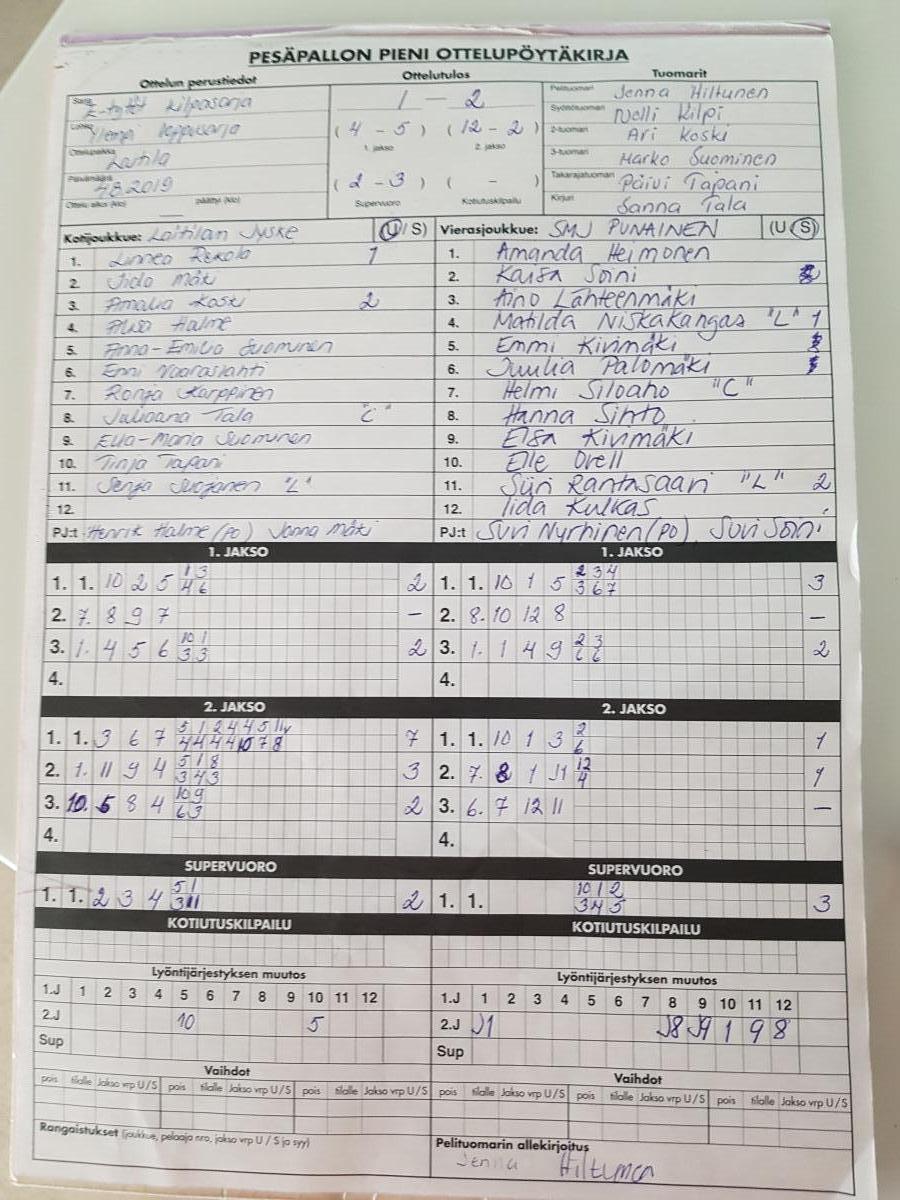 PESÄPALLON PIENI OTTELUPÖYTÄKIRJA
Ottelun perustiedot Ottelutulos Tuomarit
Sarja E-tytöt kilpasarja
1 — 2
Pelituomari Jenna Hiltunen
Lohko Ylempi loppusarja
(4 - 5) (12 - 2)
1. jakso 2. jakso
Syöttötuomari Nelli Kilpi
2-tuomari Ari Koski
Ottelupaikka Laitila
3-tuomari Marko Suominen
Päivämäärä 4.8.2019
(2 - 3) ( - )
Supervuoro Kotiutuskilpailu
Takarajatuomari Päivi Tapani
Ottelu alkoi (klo) päättyi (klo)
Kirjuri Sanna Tala
Kotijoukkue: Laitilan Jyske (U/S) Vierasjoukkue: SMJ PUNAINEN (U/S)
1. Linnea Rekola 1 1. Amanda Heimonen
2. Iida Mäki 2. Kaisa Soini
3. Amalia Koski 2 3. Aino Lähteenmäki
4. Halme 4. Matilda Niskakangas "L" 1
5. Anna-Emilia Suominen 5. Emmi Kivimäki
6. Enni Vaaraslahti 6. Juulia Palomäki
7. Ronja Karppinen 7. Helmi Siloaho "C"
8. Juliaana Tala "C" 8. Hanna Sihto
9. Ella-Maria Suominen 9. Elsa Kivimäki
10. Tinja Tapani 10. Elle Orell
11. Senja Suojanen "L" 11. Siiri Rantasaari "L" 2
12. 12. Iida Kulkas
PJ:t Henrik Halme (PO) Jonna Mäki PJ:t Suvi Nyrhinen (PO), Suvi Soini
1. JAKSO 1. JAKSO
1. 1. 10 2 5 1 3 2 1. 1. 10 1 5 2 3 4 3
4 6 3 6 7
2. 7. 8 9 7 – 2. 8. 10 12 8 –
3. 1. 4 5 6 10 1 2 3. 1. 1 4 9 2 3 2
3 3 6 6
4. 4.
2. JAKSO 2. JAKSO
1. 1. 3 6 7 5 1 2 4 4 5 11 7 1. 1. 10 1 3 2 1
4 4 4 4 10 7 8 6
2. 1. 11 9 4 5 1 8 3 2. 7. 8 1 J1 12 1
3 4 3 4
3. 10. 5 8 4 10 9 2 3. 6. 7 12 11 –
6 3
4. 4.
SUPERVUORO SUPERVUORO
1. 1. 2 3 4 5 1 2 1. 1. 10 1 2 3
3 11 3 J4 5
KOTIUTUSKILPAILU KOTIUTUSKILPAILU
Lyöntijärjestyksen muutos Lyöntijärjestyksen muutos
1.J 1 2 3 4 5 6 7 8 9 10 11 12 1.J 1 2 3 4 5 6 7 8 9 10 11 12
2.J 10 5 2.J J1 J8 J9 1 9 8
Sup Sup
Vaihdot Vaihdot
pois tilalle Jakso vrp U/S pois tilalle Jakso vrp U/S pois tilalle Jakso vrp U/S pois tilalle Jakso vrp U/S pois tilalle Jakso vrp U/S pois tilalle Jakso vrp U/S
Rangaistukset (joukkue, pelaaja nro, jakso vrp U / S ja syy) Pelituomarin allekirjoitus
Jenna Hiltunen